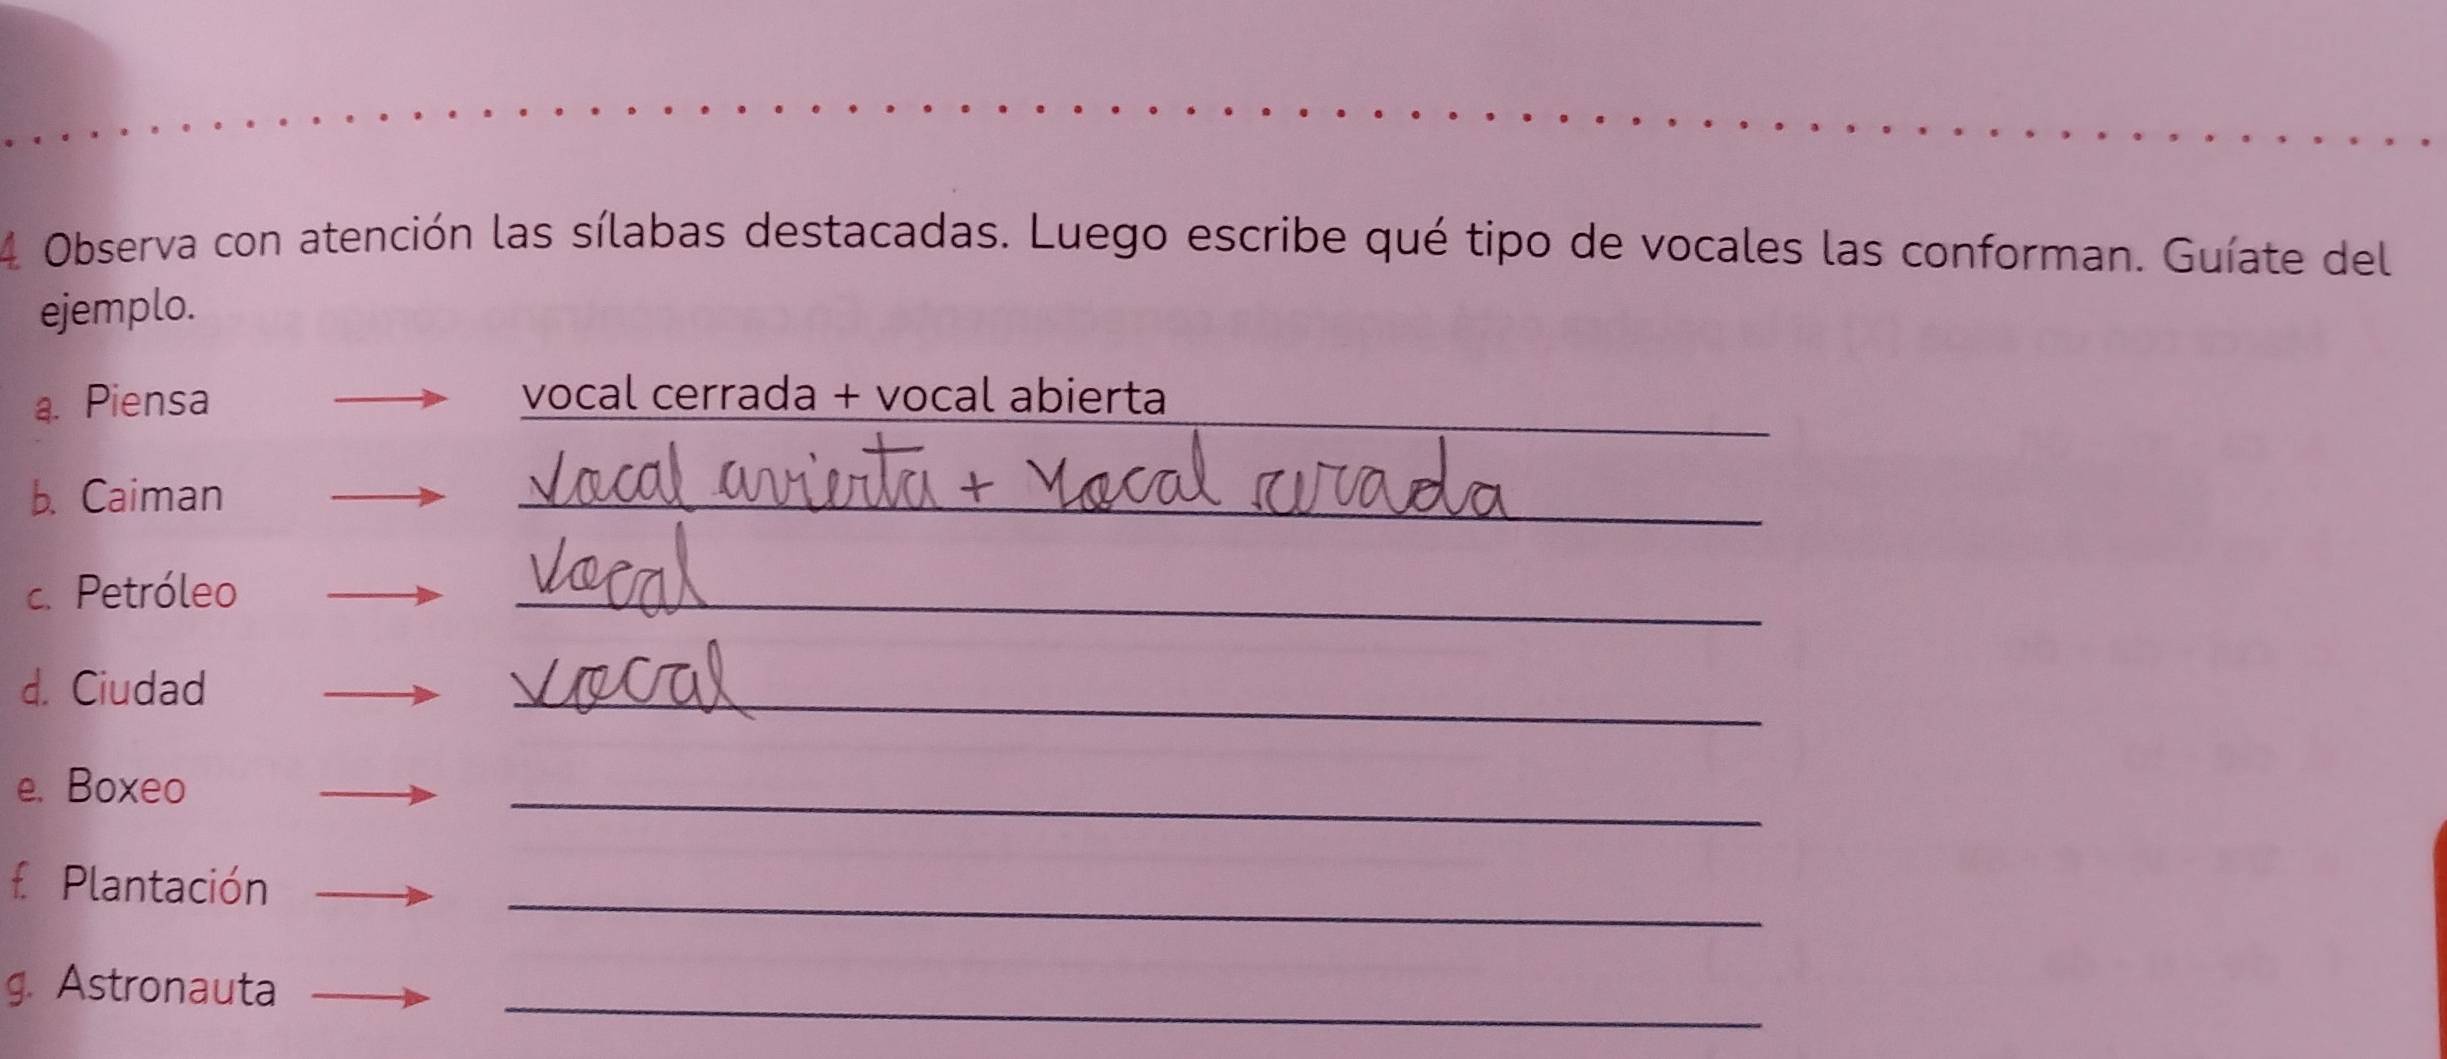 4 Observa con atención las sílabas destacadas. Luego escribe qué tipo de vocales las conforman. Guíate del
ejemplo.
a. Piensa vocal cerrada + vocal abierta
b. Caiman Vocal avierta + Vocal cerada
c. Petróleo Vocal
d. Ciudad vocal
e. Boxeo
f. Plantación
g. Astronauta